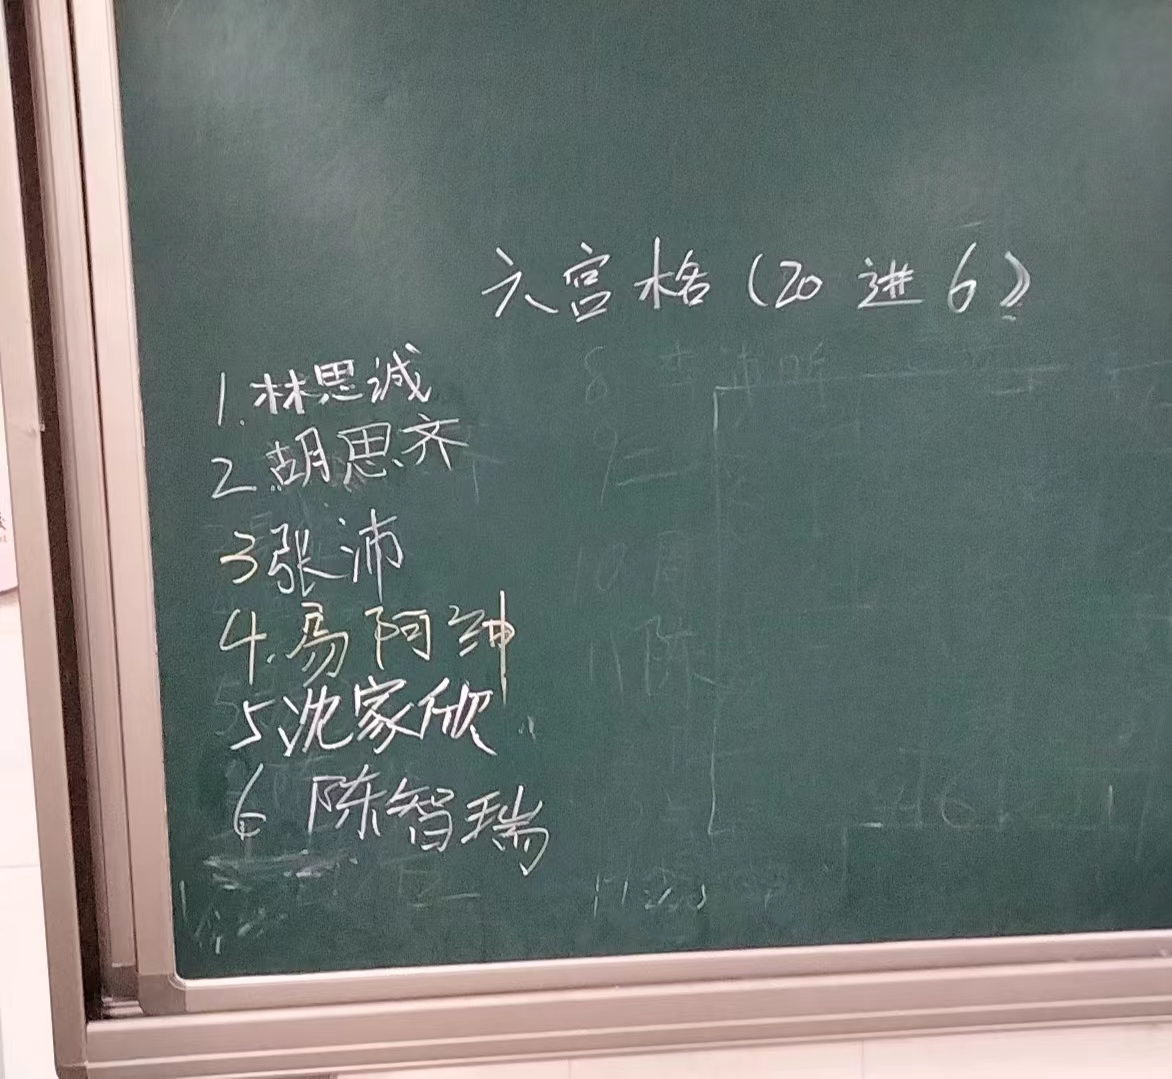 六宫格(20进6)
1.林思诚
2.胡思齐
3张沛
4.易阿绅
5沈家欣
6陈智瑞